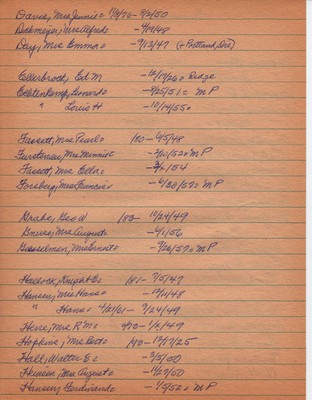 Davis, Mrs Jennie - 11/4/76 - 8/2/50
Dickmeyer, Mrs Alfred - 4/19/48
Day, Mrs Emma - 9/13/47 (+Portland, Ore)
Ellerbrock, Ed M - 12/17/26 - Dodge
Eelstenkamp, Leonard - 9/25/51 - MP
" Louis H - 10/14/55
Fassett, Mrs Pearl 180 - 6/5/48
Fursteneau, Mrs Minnie - 2/10/52 MP
Fassett, Mrs Ella - 54
Forsberg, Mrs Francis - 4/30/52 MP
Grabe, Geo W 183 - 10/24/49
Gnewe, Mrs August - 4/1/56
Gusselman, Mrs Ernest - 9/26/52 MP
Hadlock, Knight E 181 - 9/5/47
Hansen, Mrs Hans - 12/11/48
" Hans - 4/21/61 - 3/24/49
Here, Mrs R M - 1/6/49
Hopkins, Mrs Bert - 12/17/25
Hall, Walter E - 3/5/50
Hansen, Mrs August - 11/29/50
Hansen, Ferdinand - 1/5/52 MP